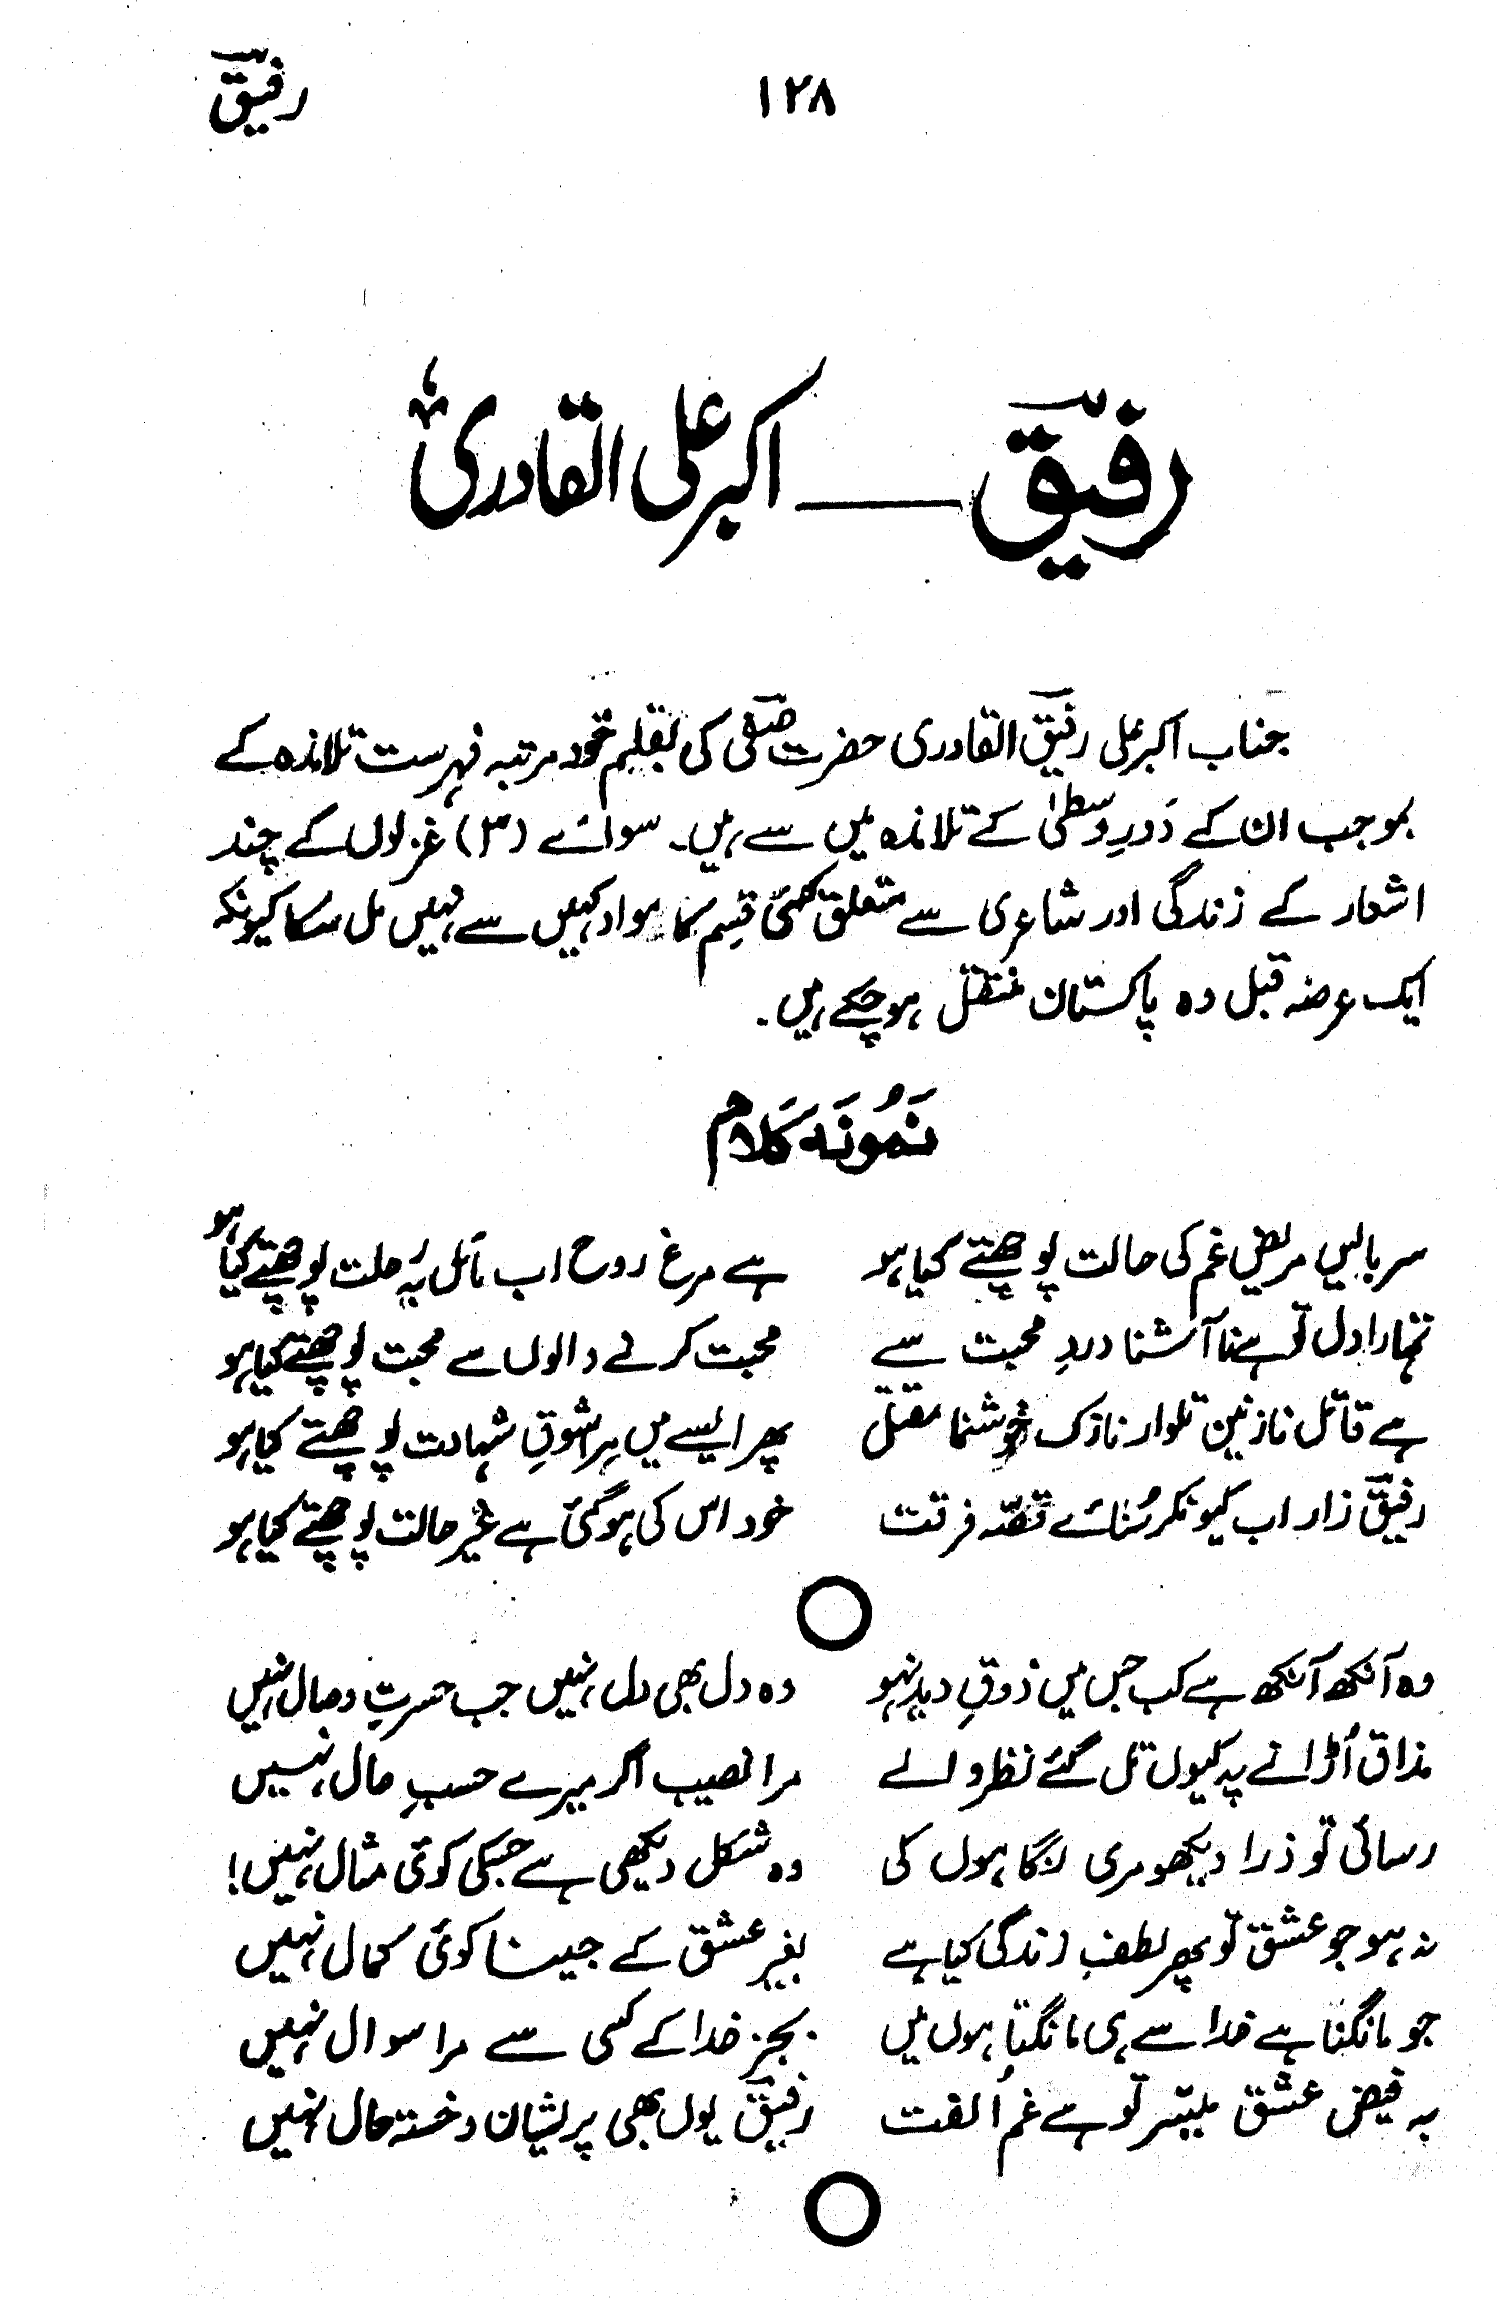 رفیق
۱۲۸
رفیق ــــ اکبر علی القادری
جناب اکبر علی رفیق القادری حضرت صفی کی بقلم خود مرتبہ فہرست تلامذہ کے
بموجب ان کے دَورِ وسطیٰ کے تلامذہ میں سے ہیں۔ سوائے (۳) غزلوں کے چند
اشعار کے زندگی اور شاعری سے متعلق کسی قسم کا مواد کہیں سے نہیں مل سکا کیونکہ
ایک عرصہ قبل وہ پاکستان منتقل ہوچکے ہیں۔
نَمُونَہ کَلام
سربالیں مریضِ غم کی حالت پوچھتے کیا ہو ہے مرغِ روح اب مائل بہ رحلت پوچھتے کیا ہو
تمہارا دل تو ہے نا آشنا دردِ محبت سے محبت کرنے والوں سے محبت پوچھتے کیا ہو
ہے قاتل نازنین تلوار نازک خوشنما مقتل پھر ایسے میں مرا شوقِ شہادت پوچھتے کیا ہو
رفیق زار اب کیونکر سُنائے قصّہ فرقت خود اس کی ہوگئی ہے غیر حالت پوچھتے کیا ہو
وہ آنکھ آنکھ ہے کب جس میں ذوقِ دید نہو وہ دل بھی دل نہیں جب حسرتِ وصال نہیں
مذاق اُڑانے پہ کیوں تل گئے نظر والے مرا نصیب اگر میرے حسبِ حال نہیں
رسائی تو ذرا دیکھو مری نگاہوں کی وہ شکل دیکھی ہے جسکی کوئی مثال نہیں!
نہ ہو جو عشق تو پھر لطفِ زندگی کیا ہے بغیر عشق کے جینا کوئی کمال نہیں
جو مانگنا ہے خدا سے ہی مانگتا ہوں میں بجز خدا کے کسی سے مرا سوال نہیں
بہ فیض عشق میسّر تو ہے غمِ اُلفت رفیق یوں بھی پریشان و خستہ حال نہیں